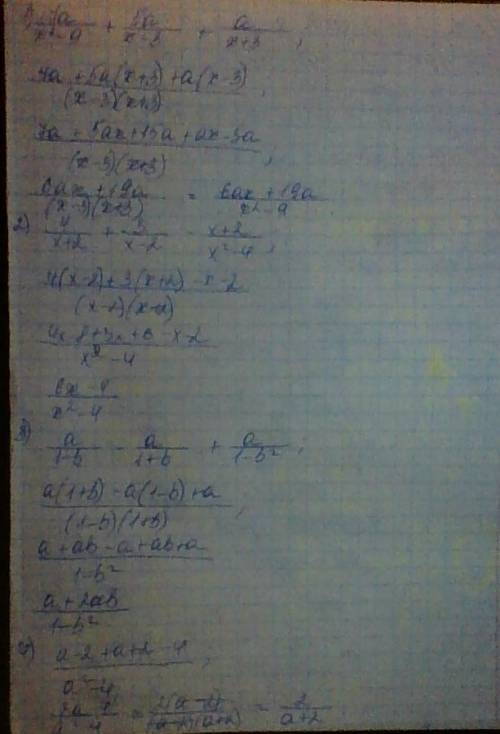 1) 7a/(x²-9) + 5a/(x-3) + a/(x+3) ;
(7a + 5a(x+3) + a(x-3))/((x-3)(x+3)) ;
(7a + 5ax + 15a + ax - 3a)/((x-3)(x+3)) ;
(6ax + 19a)/((x-3)(x+3)) = (6ax + 19a)/(x²-9)
2) 4/(x+2) + 3/(x-2) - (x+2)/(x²-4) ;
(4(x-2) + 3(x+2) - x - 2)/((x-2)(x+2))
(4x - 8 + 3x + 6 - x - 2)/(x²-4)
(6x - 4)/(x²-4)
3) a/(1-b) - a/(1+b) + a/(1-b²) ;
(a(1+b) - a(1-b) + a)/((1-b)(1+b)) ;
(a + ab - a + ab + a)/(1-b²)
(a + 2ab)/(1-b²)
4) (a-2+a+2-4)/(a²-4) ;
= 2(a-2)/((a-2)(a+2)) = 2/(a+2)